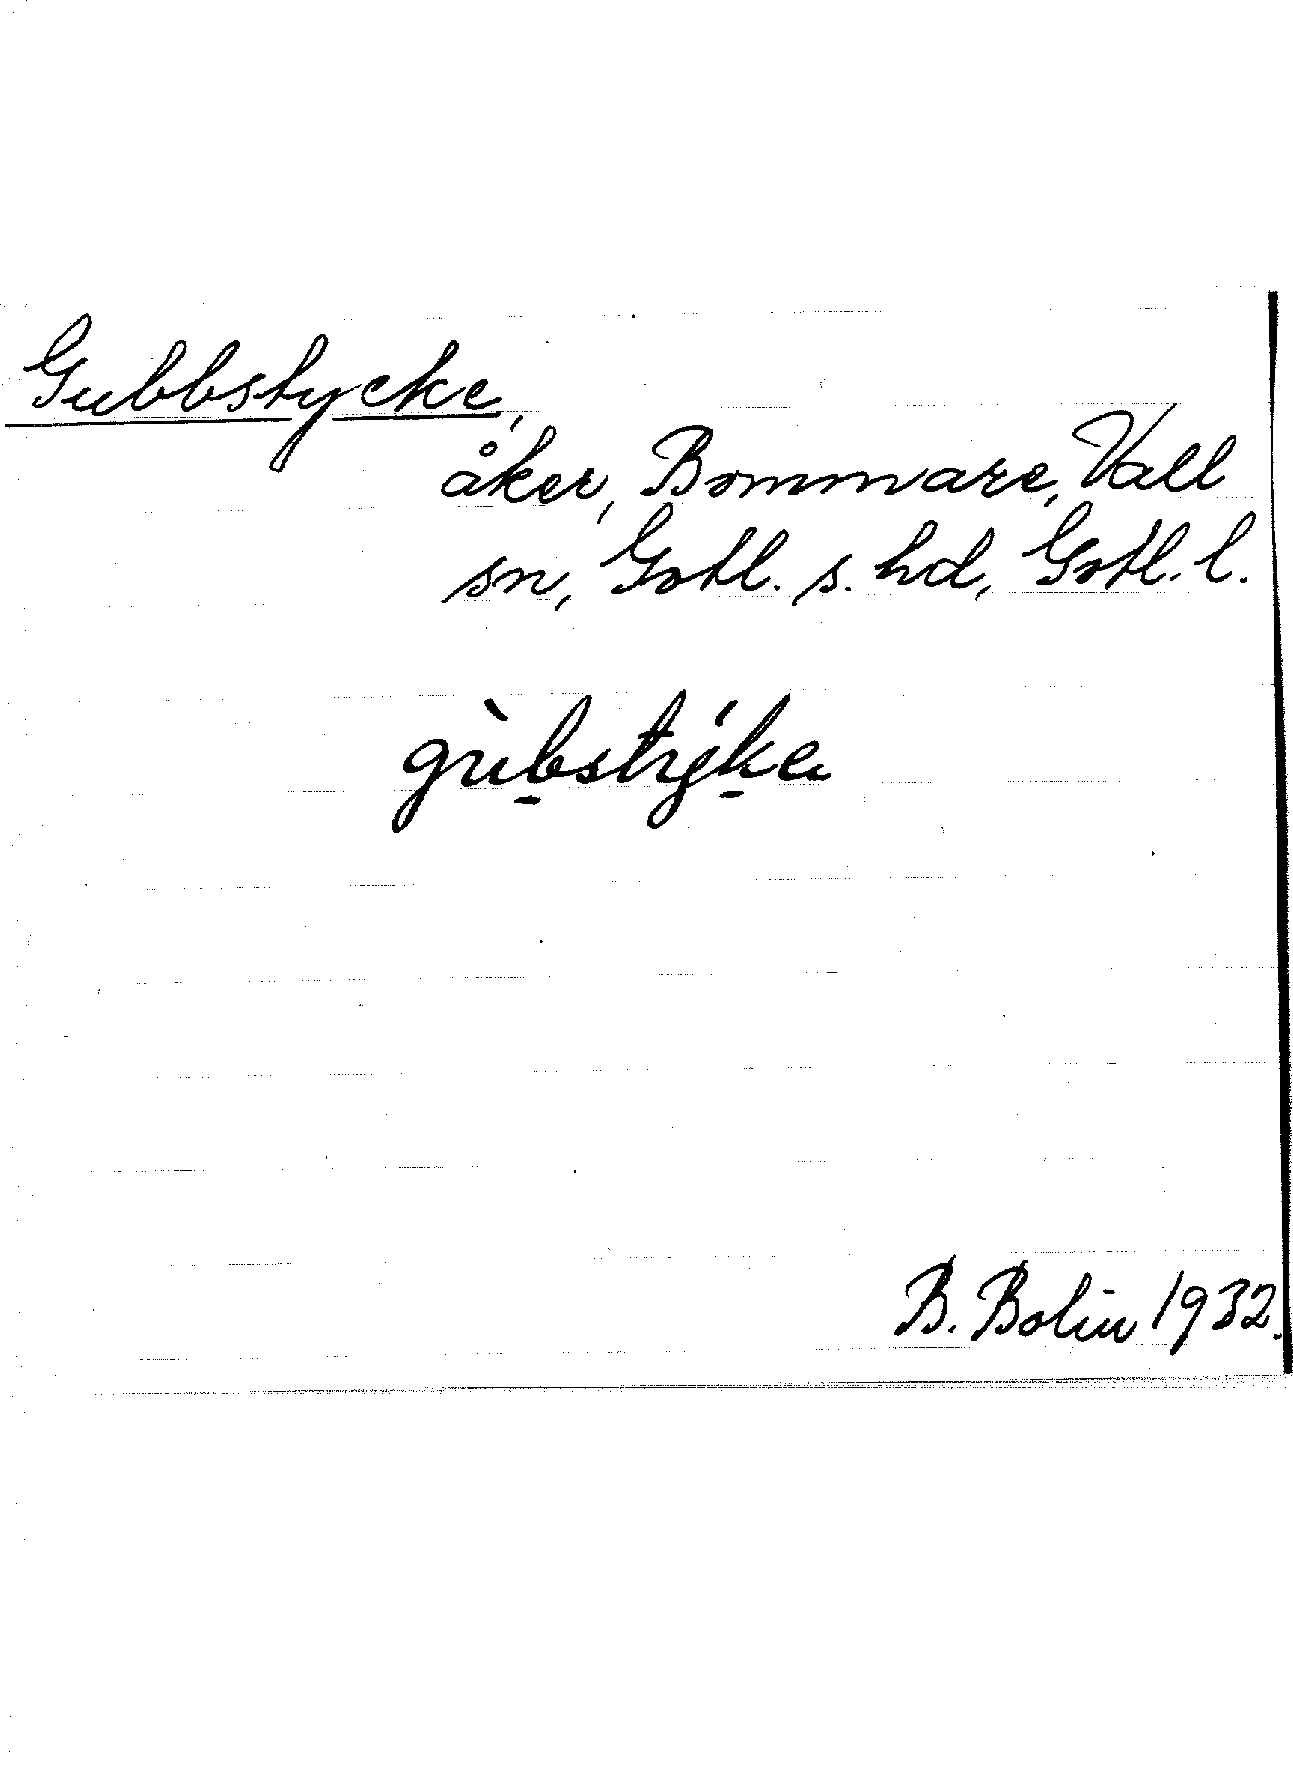 Gubbstycke,
åker, Bommare, Vall
sn, Gotl. s. hd, Gotl. l.
gùb̠stýk̠e
B. Bolin 1932.